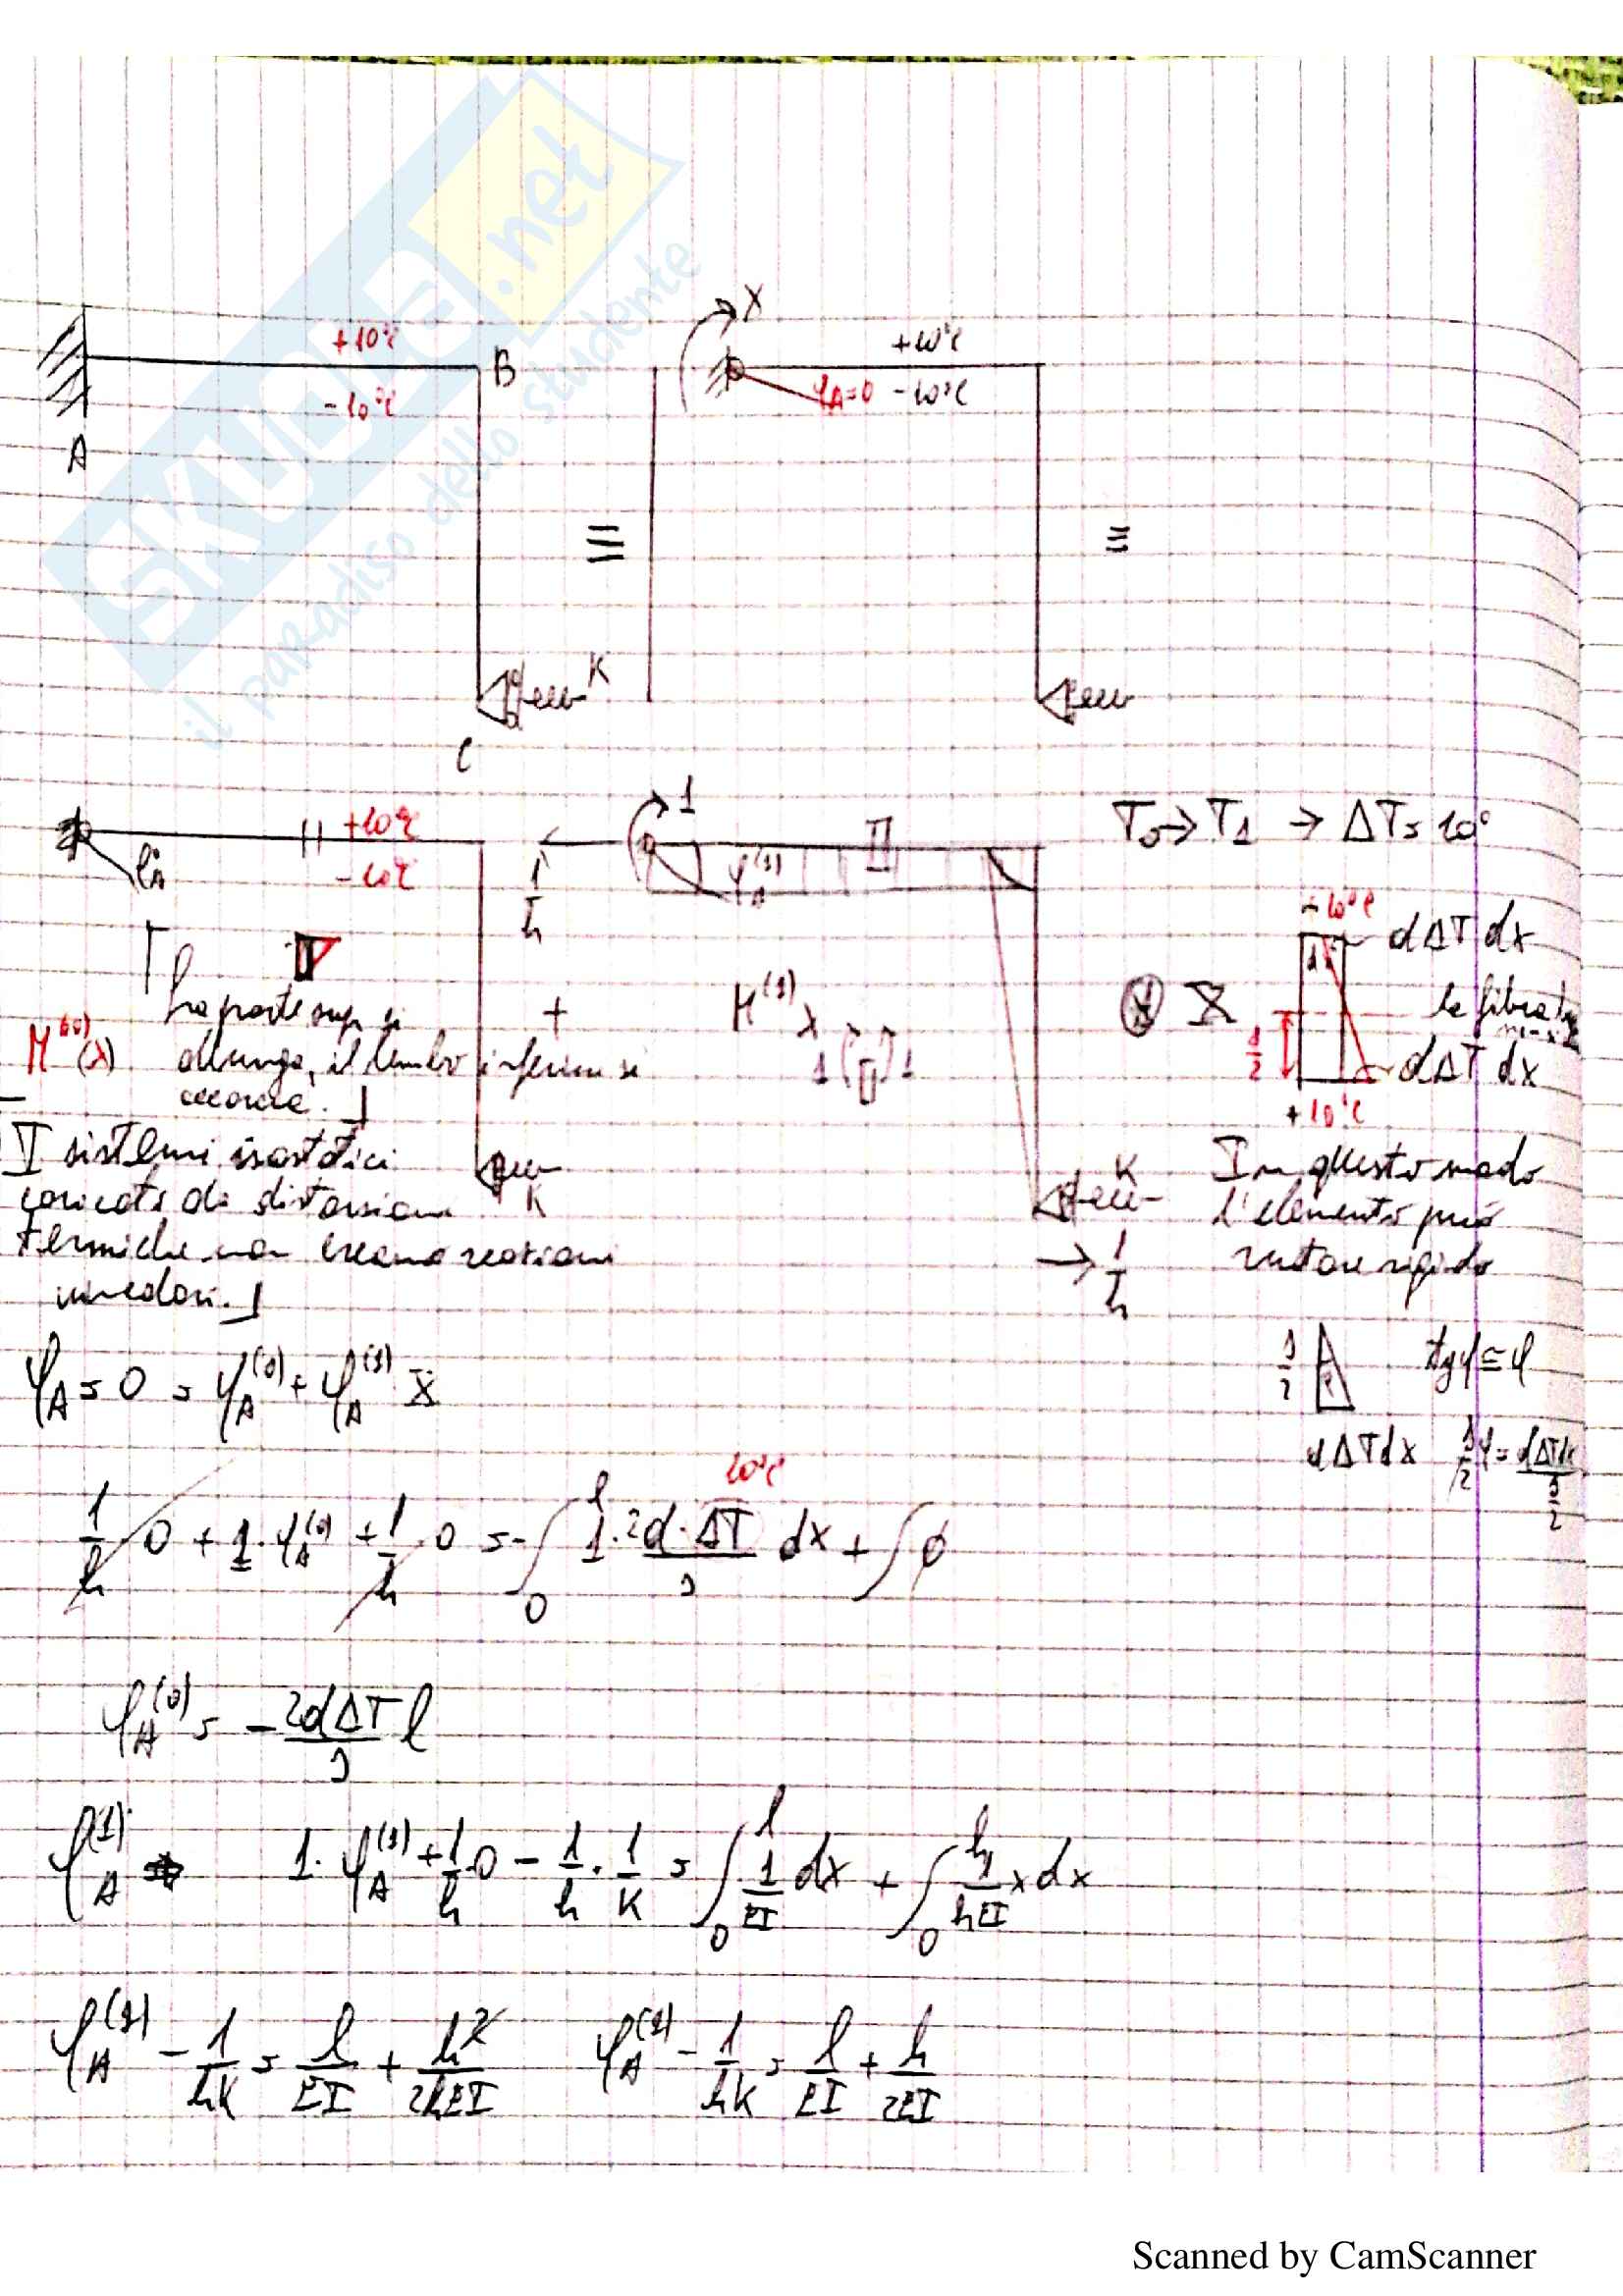 SKUOLA.net
il paradiso dello studente
+10°C
B
-10°C
A
K
C
X
+10°C
φA=0 -10°C
≡
≡
+10°C
-10°C
1
φA^(1)
1/h
T0 → T1 → ΔT = 10°
-10°C
αΔT dx
la fibra
1/2
αΔT dx
+10°C
La parte sup si
allunga, il lembo inferiore si
accorcia.
M^(0)(x)
+
M^(1)
1 ( ) 1
X
I sistemi isostatici
caricati da distorsioni
termiche non creano reazioni
vincolari.
K
K
→ 1/h
In questo modo
l'elemento può
ruotare rigido
φA = 0 = φA^(0) + φA^(1) X
tgφ ≅ φ
αΔT dx
10°C
1/h · 0 + 1 · φA^(0) + 1/h · 0 = -∫0^l 1 · 2α·ΔT/s dx + ∫ φ
φA^(0) = - 2αΔT/s l
φA^(1) 1 · φA^(1) + 1/h · 0 - 1/h · 1/K = ∫0^l 1/EI dx + ∫0^h 1/hEI x dx
φA^(1) - 1/hK = l/EI + h²/2hEI φA^(1) - 1/hK = l/EI + h/2EI
Scanned by CamScanner